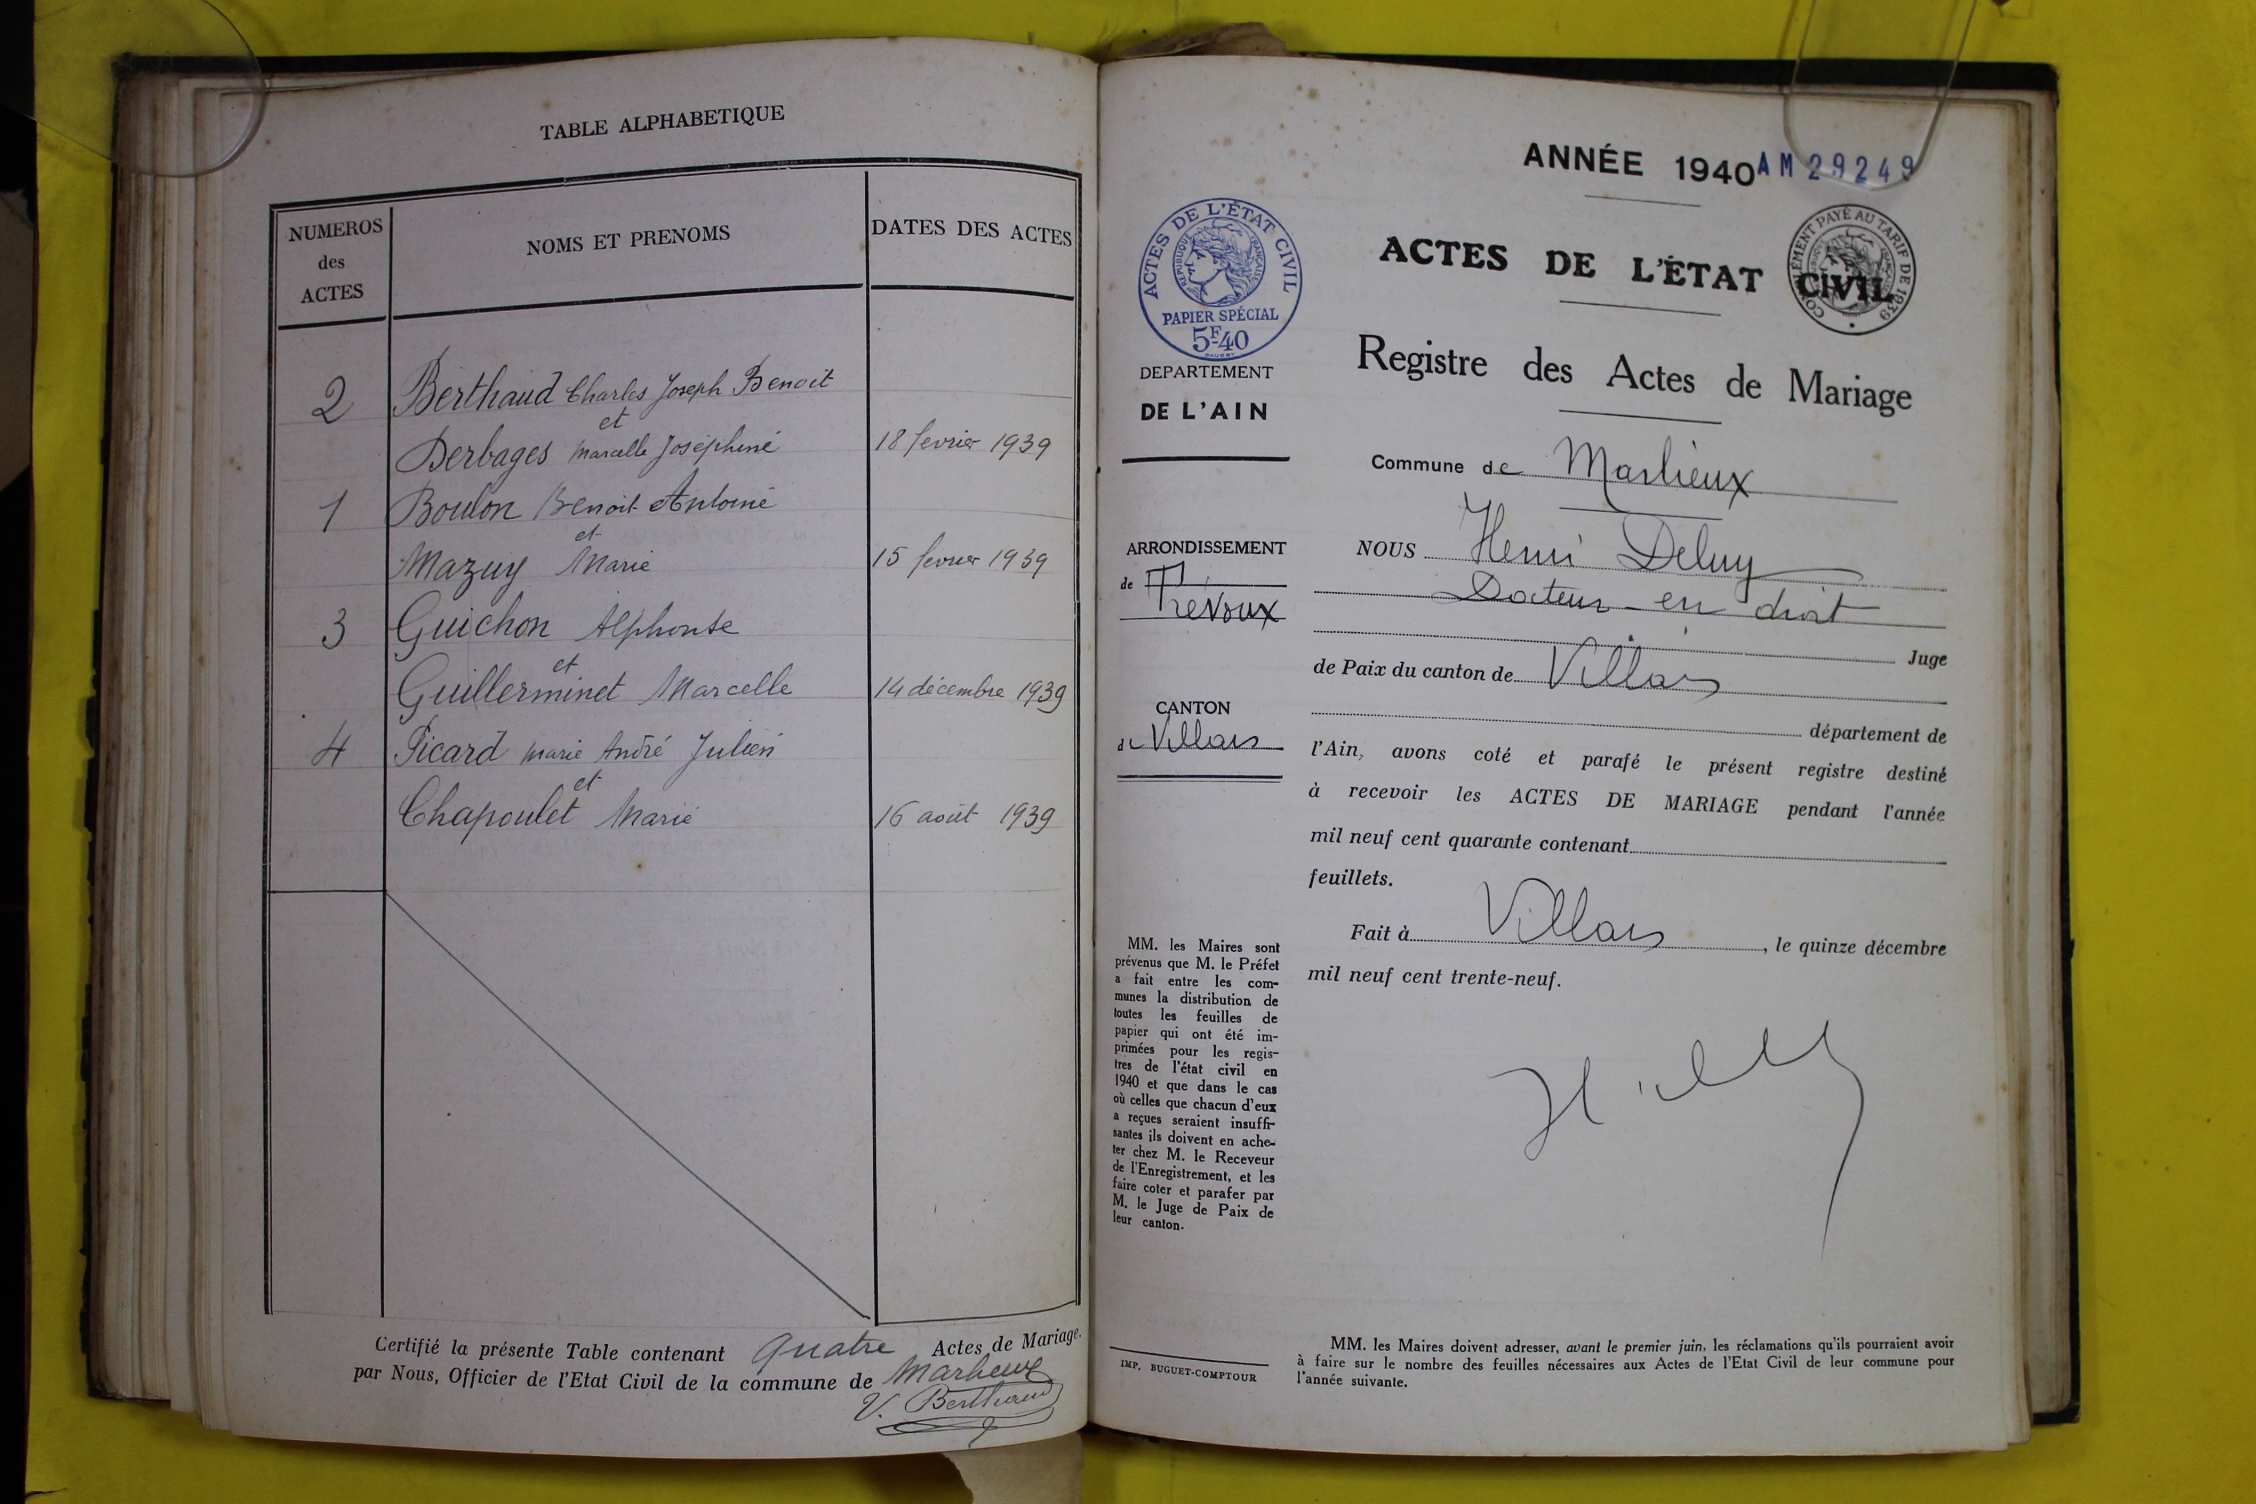 TABLE ALPHABETIQUE
NUMEROS des ACTES
NOMS ET PRENOMS
DATES DES ACTES
2 Berthaud Charles Joseph Benoit
et
Derbages Marcelle Joséphine 18 fevrier 1939
1 Boulon Benoit Antoine
et
Mazuy Marie 15 fevrier 1939
3 Guichon Alphonse
et
Guillerminet Marcelle 14 décembre 1939
4 Picard Marie André Julien
et
Chapoulet Marie 16 août 1939
Certifié la présente Table contenant Quatre Actes de Mariage.
par Nous, Officier de l'Etat Civil de la commune de Marlieux
V. Berthaud
ANNÉE 1940 AM 29249
ACTES DE L'ÉTAT CIVIL
RÉPUBLIQUE FRANÇAISE
PAPIER SPÉCIAL
5F40
COMPLÉMENT PAYÉ AU TARIF DE 1939
ACTES DE L'ÉTAT CIVIL
DEPARTEMENT
DE L'AIN
Registre des Actes de Mariage
Commune de Marlieux
ARRONDISSEMENT
de Trévoux
CANTON
de Villars
NOUS Henri Deluy
Docteur en droit
Juge
de Paix du canton de Villars
département de
l'Ain, avons coté et parafé le présent registre destiné
à recevoir les ACTES DE MARIAGE pendant l'année
mil neuf cent quarante contenant
feuillets.
Fait à Villars, le quinze décembre
mil neuf cent trente-neuf.
MM. les Maires sont
prévenus que M. le Préfet
a fait entre les com-
munes la distribution de
toutes les feuilles de
papier qui ont été im-
primées pour les regis-
tres de l'état civil en
1940 et que dans le cas
où celles que chacun d'eux
a reçues seraient insuffi-
santes ils doivent en ache-
ter chez M. le Receveur
de l'Enregistrement, et les
faire coter et parafer par
M. le Juge de Paix de
leur canton.
IMP. BUGUET-COMPTOUR
MM. les Maires doivent adresser, avant le premier juin, les réclamations qu'ils pourraient avoir
à faire sur le nombre des feuilles nécessaires aux Actes de l'Etat Civil de leur commune pour
l'année suivante.